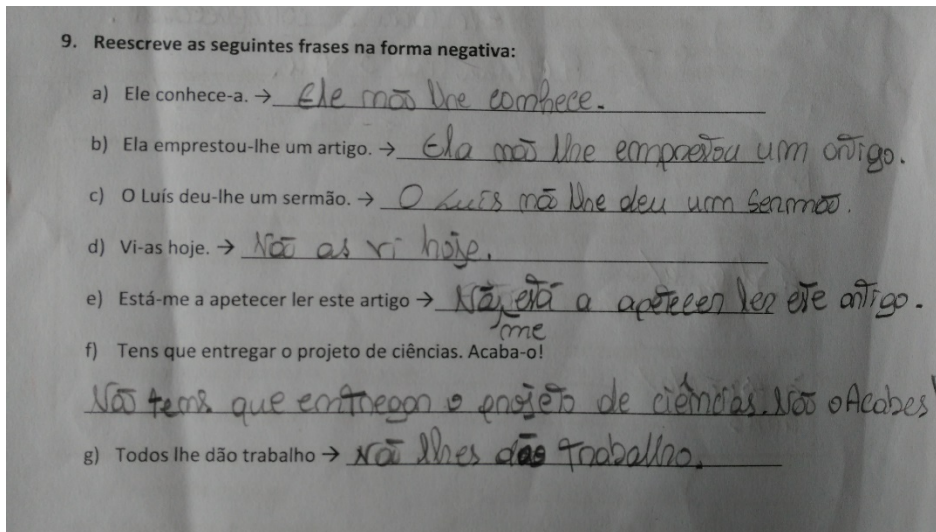 9. Reescreve as seguintes frases na forma negativa:
a) Ele conhece-a. → Ele não lhe conhece.
b) Ela emprestou-lhe um artigo. → Ela não lhe emprestou um artigo.
c) O Luís deu-lhe um sermão. → O Luís não lhe deu um Sermão.
d) Vi-as hoje. → Não as vi hoje.
e) Está-me a apetecer ler este artigo → Não está a apetecer ler este artigo.
me
f) Tens que entregar o projeto de ciências. Acaba-o!
Não tens que entregar o projeto de ciências. Não o Acabes!
g) Todos lhe dão trabalho → Não lhes dão trabalho.